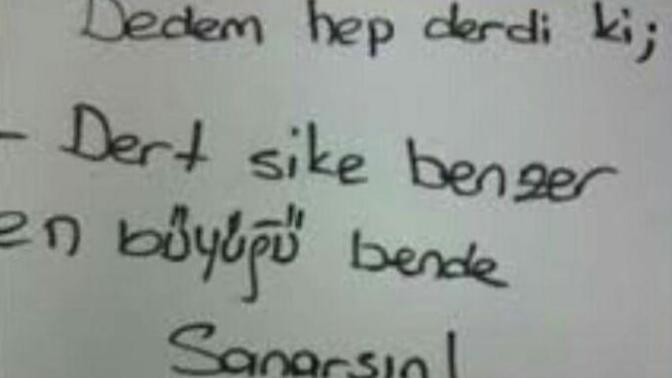 Dedem hep derdi ki;
- Dert sike benzer
en büyüğü bende
Sanarsın!